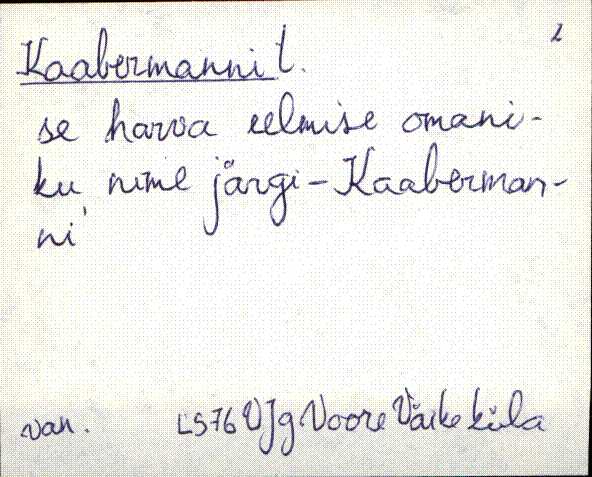 2
Kaabermanni t.
se harva eelmise omani-
ku nime järgi - Kaaberman-
ni'
van. LS76 VJg Voore Väike küla